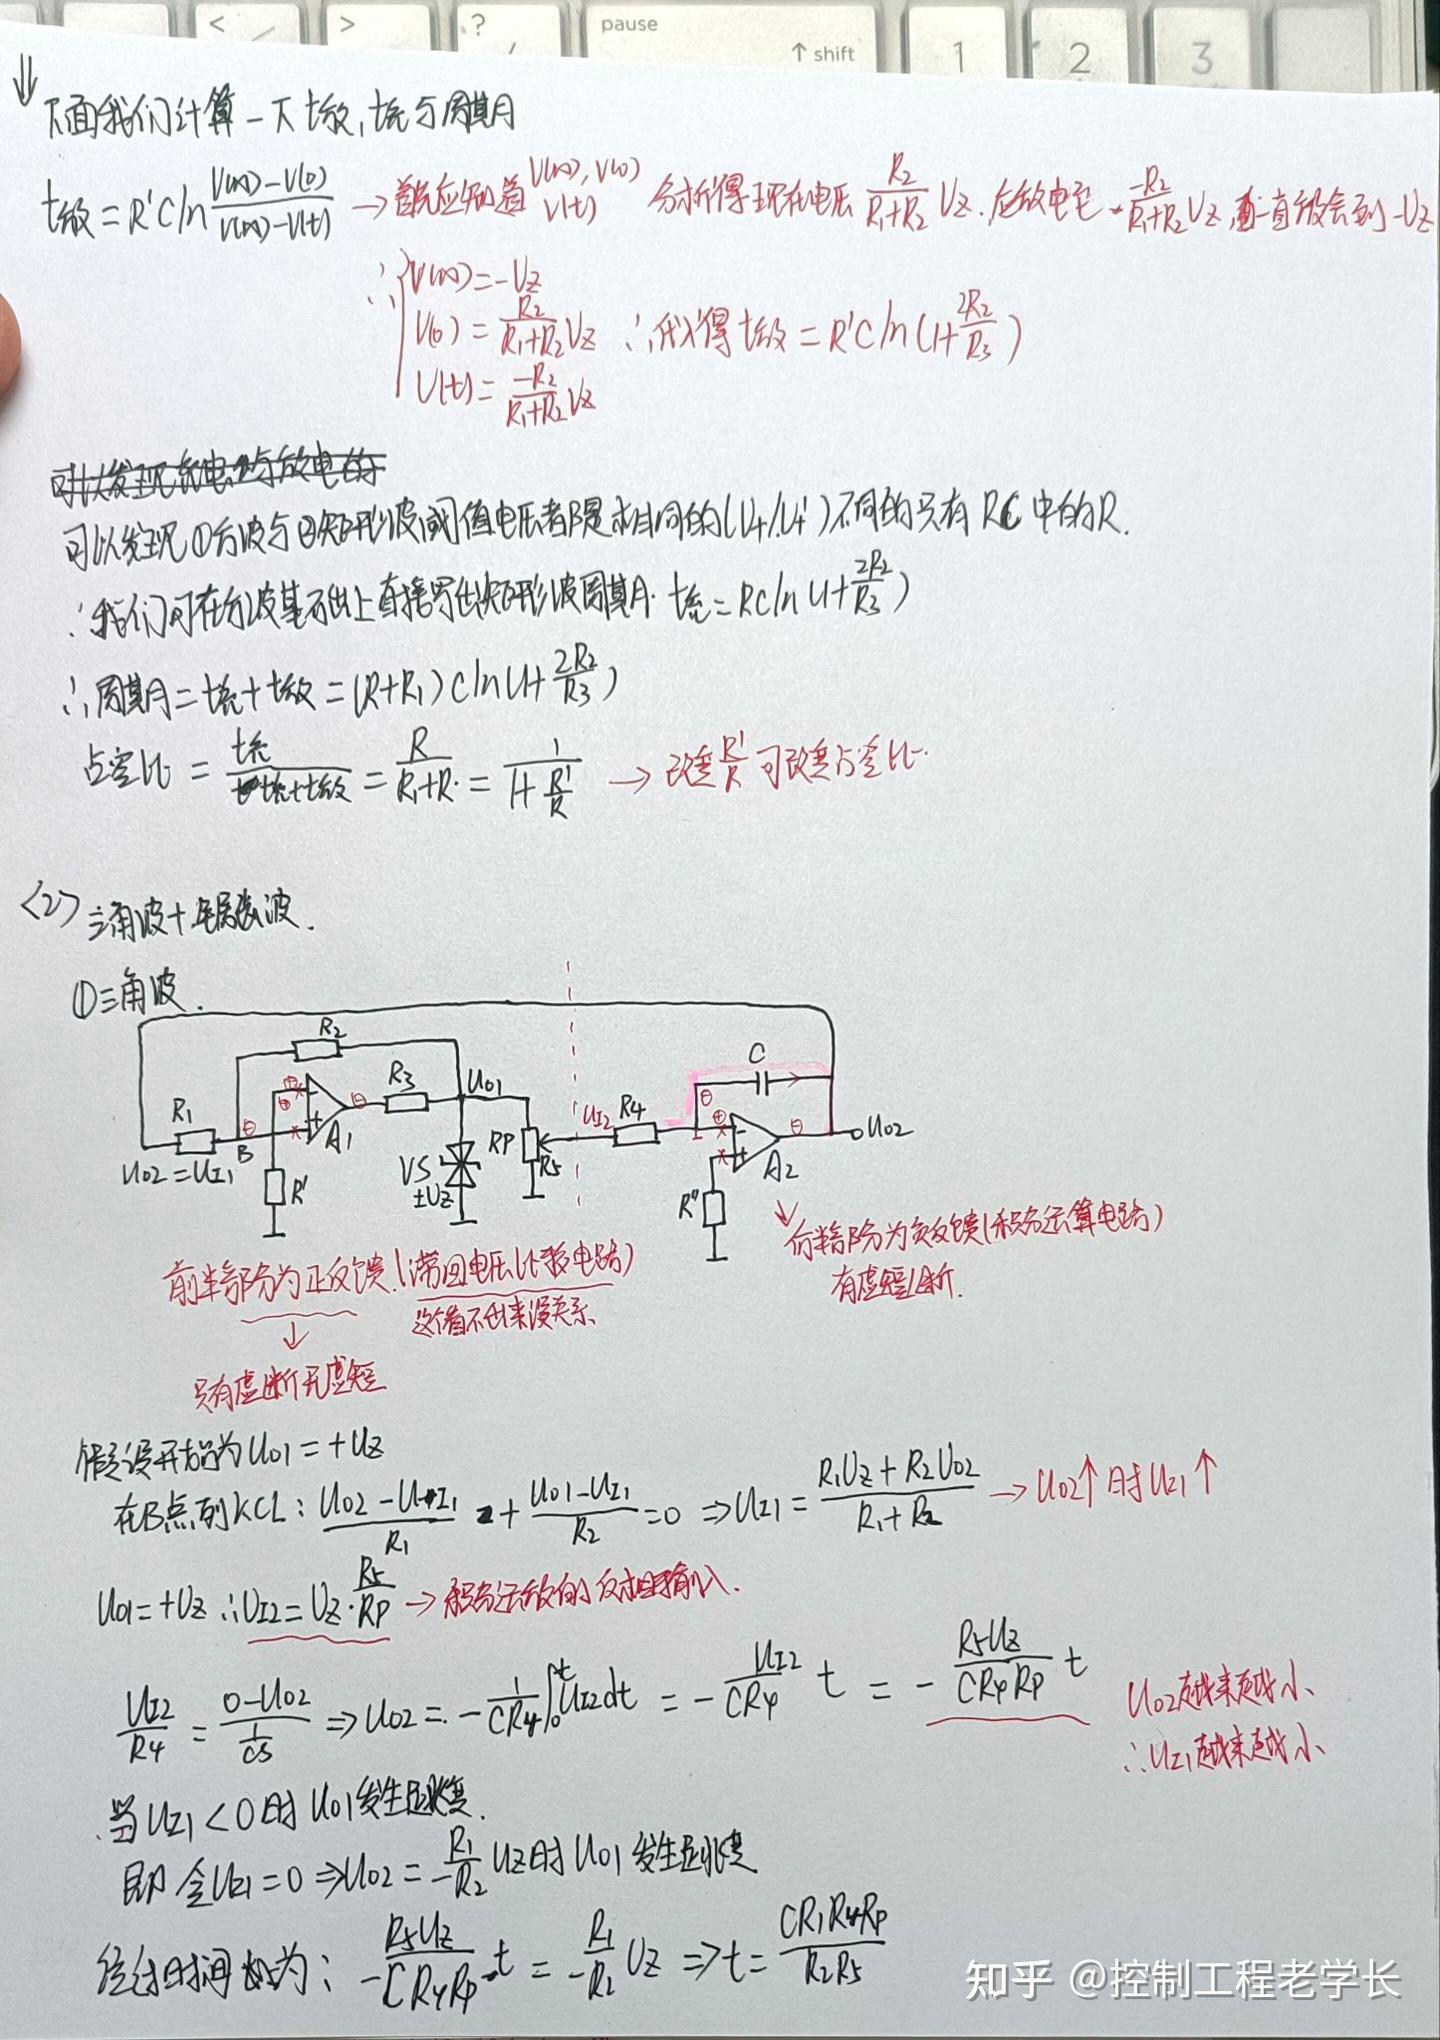 < >
?
/
pause
↑ shift
1 2 3
⇓ 下面我们计算一下 t放, t充与周期
t放 = R'C ln (V(∞)-V(0))/(V(∞)-V(t)) → 首先应知道 V(∞), V(0) V(t) 分析得现在电压 R2/(R1+R2) Uz. 应放电至 -R2/(R1+R2) Uz, 一直放会到 -Uz
∴ V(∞) = -Uz
V(0) = R2/(R1+R2) Uz ∴代入得 t放 = R'C ln(1+ 2R2/R3)
V(t) = -R2/(R1+R2) Uz
可以发现充电与放电的
可以发现①方波与②矩形波阈值电压都是相同的(U+/U+') 不同的只有 RC 中的R.
∴我们可在方波基础上直接写出矩形波周期. t充 = RC ln(1+ 2R2/R3)
∴周期 = t充 + t放 = (R+R1) C ln(1+ 2R2/R3)
占空比 = t充/(t充+t放) = R/(R1+R) = 1/(1+ R'/R) → 改变 R'/R 可改变占空比.
<2> 三角波+锯齿波.
①三角波.
R2
C
R3 Uo1
UI2 R4
R1
A1
RP R5
B
A2
Uo2
Uo2 = UI1
R'
VS ±Uz
R"
前半部分为正反馈(滞回电压比较电路)
这个看不出来没关系
后半部分为负反馈(积分运算电路)
有虚短虚断.
只有虚断无虚短
假设开始为 Uo1 = +Uz
在B点列KCL: (Uo2 - UI1)/R1 + (Uo1 - UI1)/R2 = 0 ⇒ UI1 = (R1Uz + R2Uo2)/(R1+R2) → Uo2↑时 UI1↑
Uo1 = +Uz ∴UI2 = Uz · R5/RP → 积分运放的反相输入.
UI2/R4 = (0-Uo2)/(1/CS) ⇒ Uo2 = - 1/(CR4) ∫₀ᵗ UI2 dt = - UI2/(CR4) t = - R5Uz/(CR4RP) t
Uo2越来越小
∴UI1越来越小
当 UI1 < 0 时 Uo1 发生跳变.
即 令UI1 = 0 ⇒ Uo2 = -R1/R2 Uz时 Uo1 发生跳变
经过时间为: -R5Uz/(CR4RP) t = -R1/R2 Uz ⇒ t = CR1R4RP/(R2R5)
知乎 @控制工程老学长